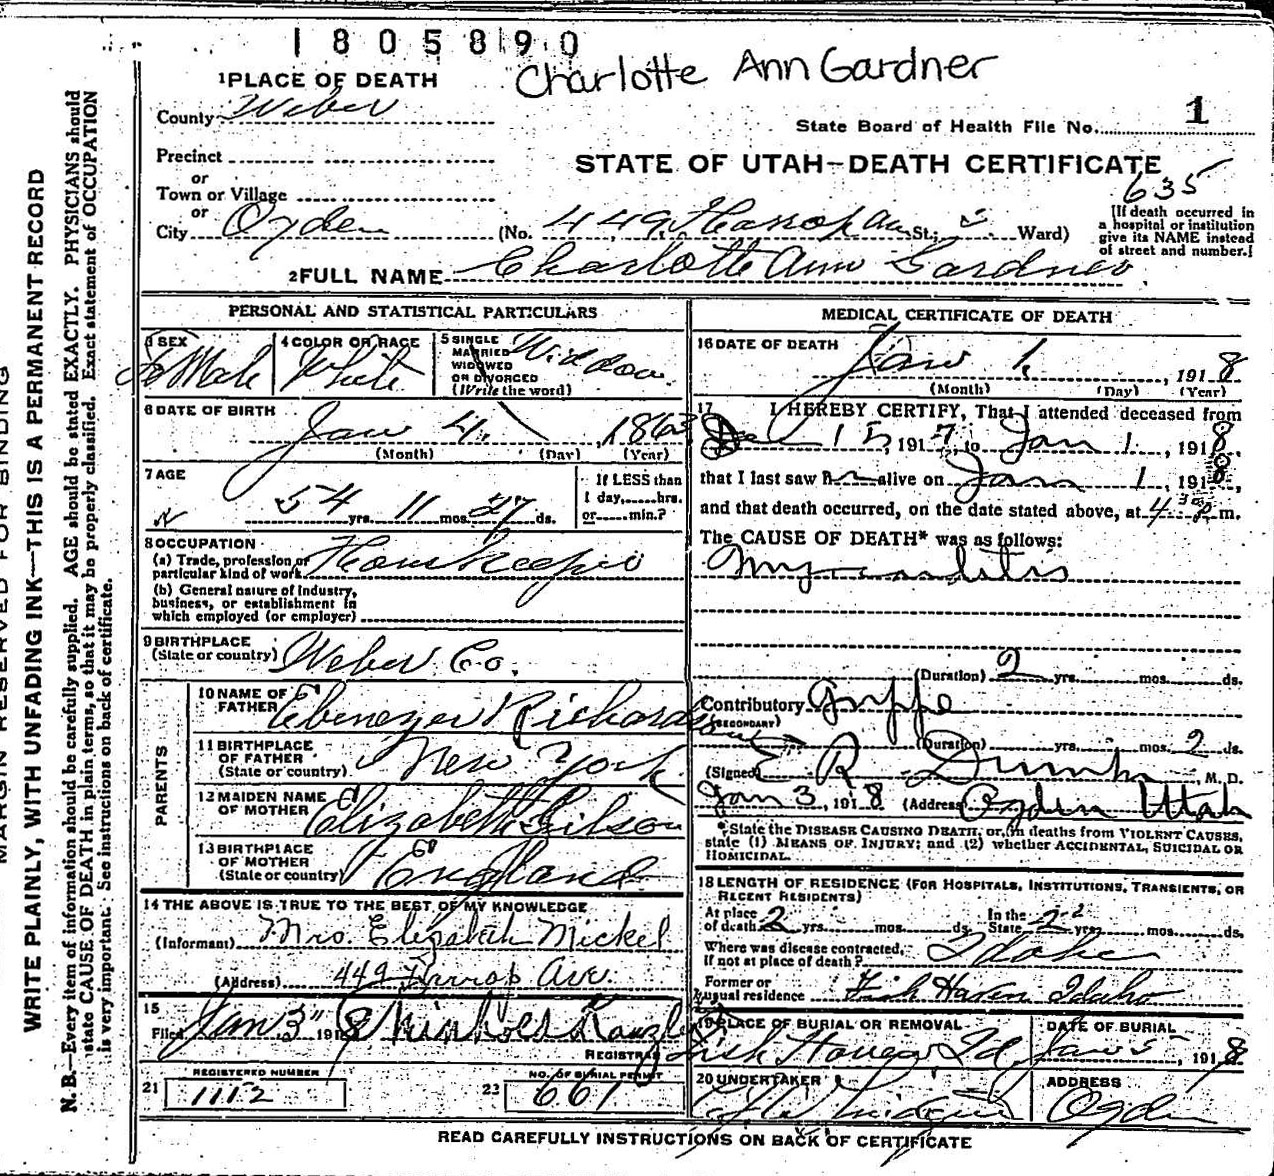 1805890
Charlotte Ann Gardner
1 PLACE OF DEATH
County Weber
State Board of Health File No. 1
Precinct
or
Town or Village
or
City Ogden
STATE OF UTAH—DEATH CERTIFICATE
635
(No. 449 Harrop Ave St.; Ward)
[If death occurred in
a hospital or institution
give its NAME instead
of street and number.]
2 FULL NAME Charlotte Ann Gardner
PERSONAL AND STATISTICAL PARTICULARS
3 SEX
FeMale
4 COLOR OR RACE
White
5 SINGLE
MARRIED
WIDOWED
OR DIVORCED
(Write the word)
Widdow
6 DATE OF BIRTH
Jan 4, 1863
(Month) (Day) (Year)
7 AGE
54 yrs. 11 mos. 27 ds.
If LESS than
1 day,......hrs.
or......min.?
8 OCCUPATION
(a) Trade, profession or
particular kind of work
(b) General nature of industry,
business, or establishment in
which employed (or employer)
9 BIRTHPLACE
(State or country) Weber Co.
PARENTS
10 NAME OF
FATHER Ebenezer Richardson
11 BIRTHPLACE
OF FATHER
(State or country) New York
12 MAIDEN NAME
OF MOTHER Elizabeth Gilson
13 BIRTHPLACE
OF MOTHER
(State or country) England
14 THE ABOVE IS TRUE TO THE BEST OF MY KNOWLEDGE
(Informant) Mrs. Elizabeth Mickel
(Address) 449 Harrop Ave.
15
Filed Jan 3" 1918
REGISTRAR
REGISTERED NUMBER
21 1112
NO. OF BURIAL PERMIT
22 661
MEDICAL CERTIFICATE OF DEATH
16 DATE OF DEATH
Jan 1, 1918
(Month) (Day) (Year)
17 I HEREBY CERTIFY, That I attended deceased from
Dec 15, 1917, to Jan 1, 1918
that I last saw h alive on Jan 1, 1918,
and that death occurred, on the date stated above, at 4:30 m.
The CAUSE OF DEATH* was as follows:
Myocarditis
(Duration) 2 yrs. mos. ds.
Contributory Grippe
(SECONDARY)
(Duration) yrs. mos. 2 ds.
(Signed) E R Dumke, M. D.
Jan 3, 1918 (Address) Ogden Utah
*State the DISEASE CAUSING DEATH, or, in deaths from VIOLENT CAUSES,
state (1) MEANS OF INJURY; and (2) whether ACCIDENTAL, SUICIDAL OR
HOMICIDAL.
18 LENGTH OF RESIDENCE (FOR HOSPITALS, INSTITUTIONS, TRANSIENTS, OR
RECENT RESIDENTS)
At place
of death 2 yrs. mos. ds.
In the
State yrs. mos. ds.
Where was disease contracted,
if not at place of death? Idaho
Former or
usual residence Fish Haven Idaho
19 PLACE OF BURIAL OR REMOVAL
Fish Haven, Id.
DATE OF BURIAL
Jan 5, 1918
20 UNDERTAKER
ADDRESS
Ogden
READ CAREFULLY INSTRUCTIONS ON BACK OF CERTIFICATE
MARGIN RESERVED FOR BINDING
WRITE PLAINLY, WITH UNFADING INK—THIS IS A PERMANENT RECORD
N. B.—Every item of information should be carefully supplied. AGE should be stated EXACTLY. PHYSICIANS should
state CAUSE OF DEATH in plain terms, so that it may be properly classified. Exact statement of OCCUPATION
is very important. See instructions on back of certificate.